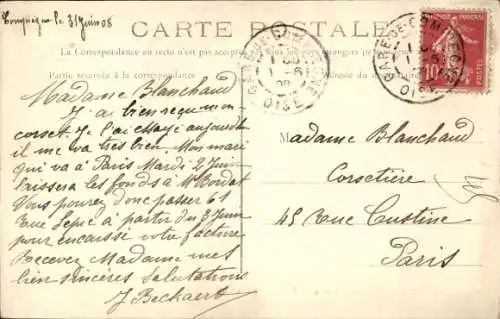 Compiègne le 31 Juin 08
CARTE POSTALE
La Correspondance au recto n'est pas acceptée par tous les pays étrangers
Partie réservée à la correspondance
Adresse du destinataire
GARE DE COMPIÈGNE
OISE
GARE DE COMPIÈGNE
OISE
10
POSTES
Madame Blanchaud
J'ai bien reçu mon
corset. Je l'ai essayé aujourd'hui
il me va très bien. Mon mari
qui va à Paris Mardi 2 Juin
laissera les fonds à Mr Bordat
Vous pourrez donc passer 61
Rue Lepic à partir du 3 Juin
pour encaisser votre facture
Recevez Madame mes
bien sincères salutations
J Beckaert
Madame Blanchaud
Corsetière
45 Rue Custine
Paris